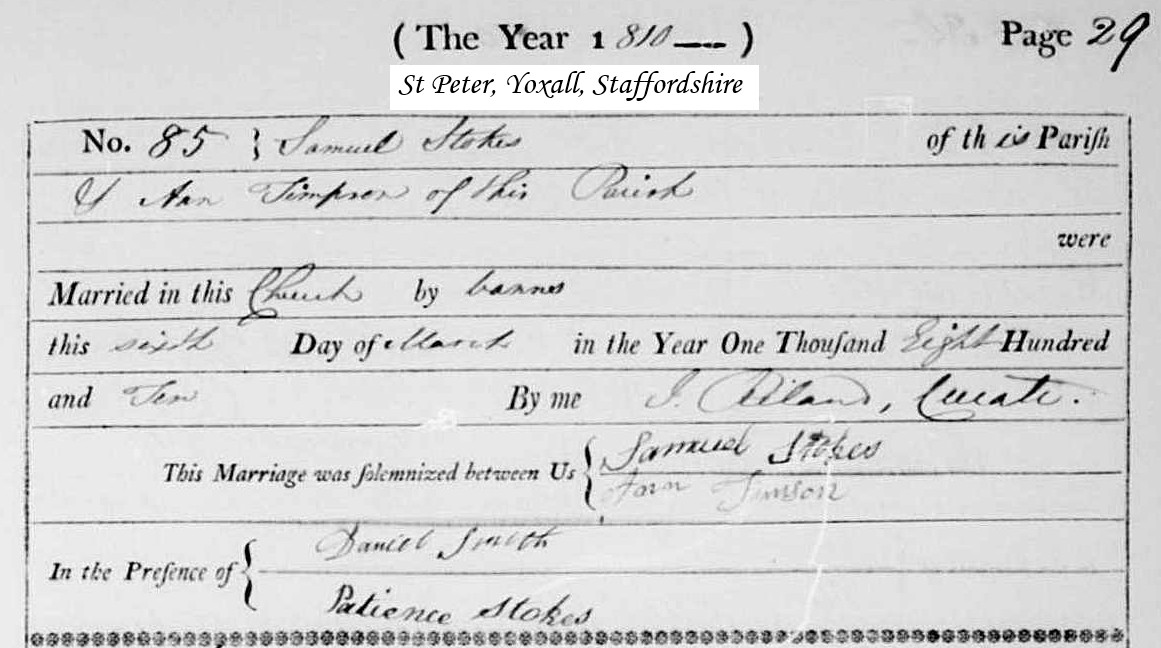 ( The Year 1 810 — ) Page 29
St Peter, Yoxall, Staffordshire
No. 85 } Samuel Stokes of this Pariſh
& Ann Timpson of this Parish
were
Married in this Church by banns
this sixth Day of March in the Year One Thouſand Eight Hundred
and Ten By me J. Riland, Curate.
This Marriage was ſolemnized between Us { Samuel Stokes
Timson
In the Preſence of { Daniel Smith
Patience Stokes